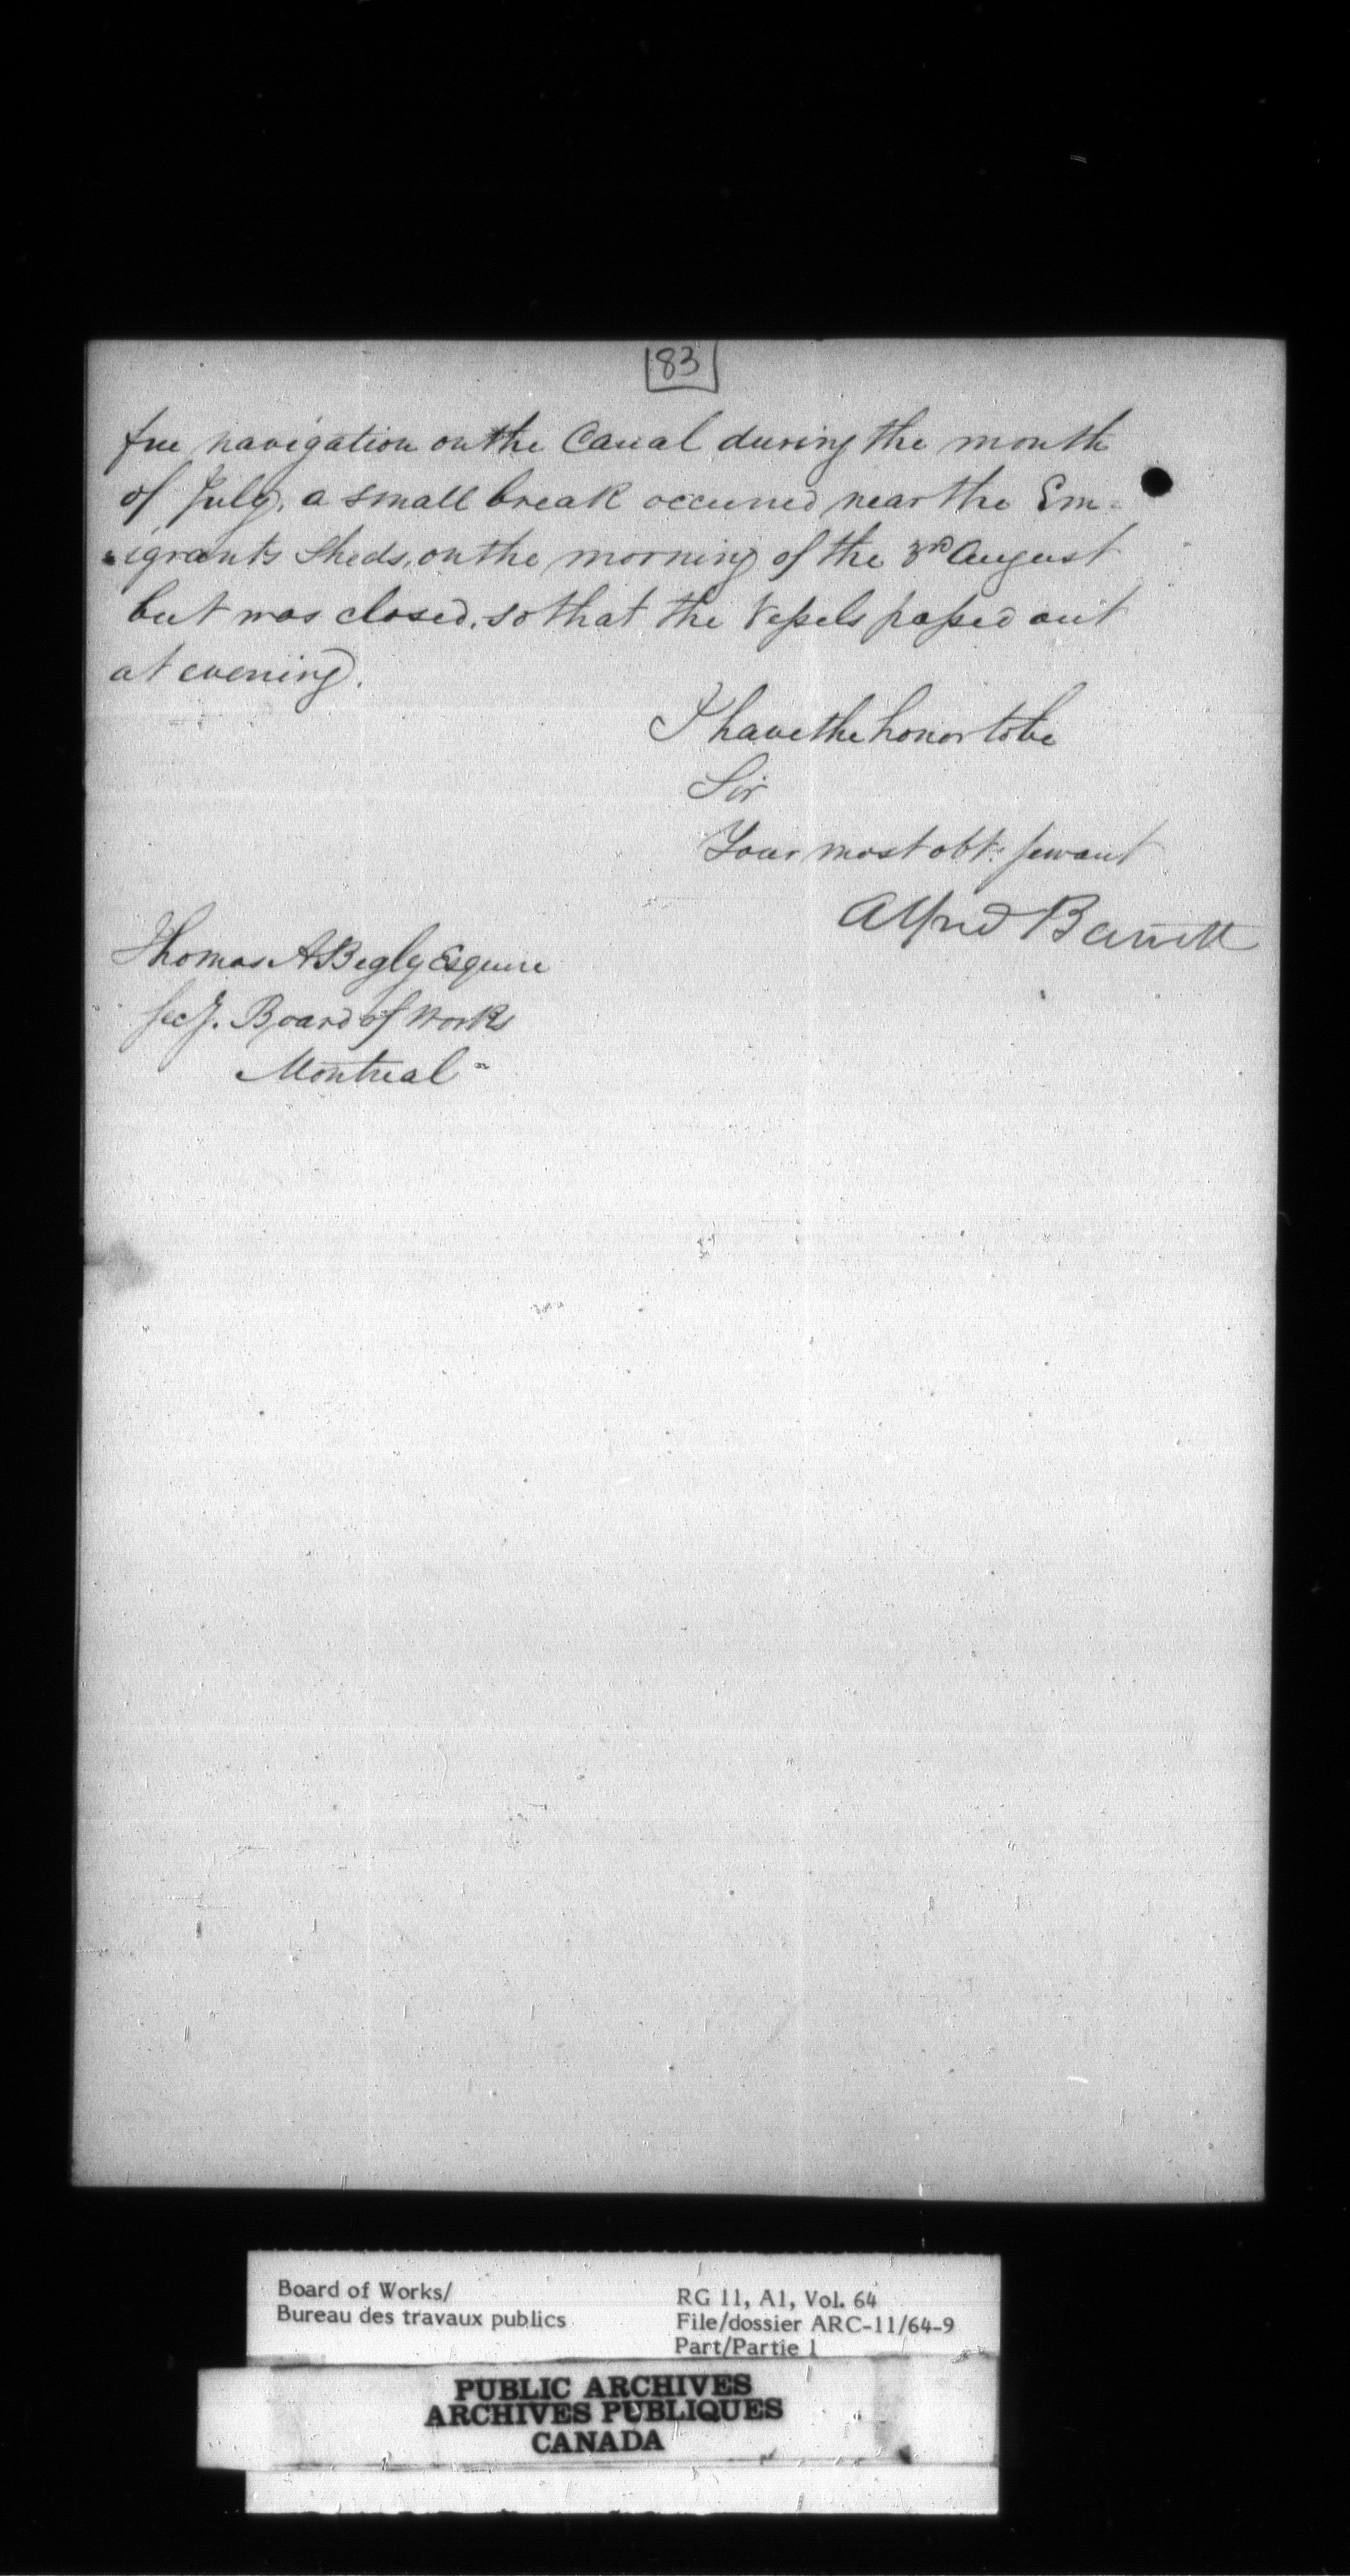 83
free navigation on the Canal during the month
of July, a small break occurred near the Em=
=igrants Sheds, on the morning of the 3rd August
but was closed, so that the Vessels passed out
at evening.
I have the honor to be
Sir
Your most obt. servant
Alfred Barrett
Thomas A Begly Esquire
Secy. Board of Works
Montreal
Board of Works/
Bureau des travaux publics
RG 11, A1, Vol. 64
File/dossier ARC-11/64-9
Part/Partie 1
PUBLIC ARCHIVES
ARCHIVES PUBLIQUES
CANADA